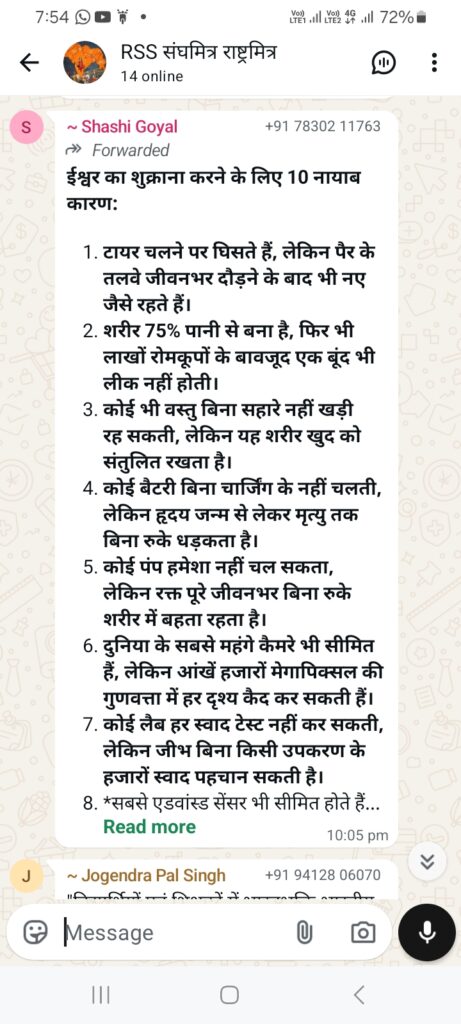 7:54
Vo) LTE1 Vo) LTE2 4G 72%
RSS संघमित्र राष्ट्रमित्र
14 online
S
~ Shashi Goyal +91 78302 11763
Forwarded
ईश्वर का शुक्राना करने के लिए 10 नायाब
कारण:
1. टायर चलने पर घिसते हैं, लेकिन पैर के
तलवे जीवनभर दौड़ने के बाद भी नए
जैसे रहते हैं।
2. शरीर 75% पानी से बना है, फिर भी
लाखों रोमकूपों के बावजूद एक बूंद भी
लीक नहीं होती।
3. कोई भी वस्तु बिना सहारे नहीं खड़ी
रह सकती, लेकिन यह शरीर खुद को
संतुलित रखता है।
4. कोई बैटरी बिना चार्जिंग के नहीं चलती,
लेकिन हृदय जन्म से लेकर मृत्यु तक
बिना रुके धड़कता है।
5. कोई पंप हमेशा नहीं चल सकता,
लेकिन रक्त पूरे जीवनभर बिना रुके
शरीर में बहता रहता है।
6. दुनिया के सबसे महंगे कैमरे भी सीमित
हैं, लेकिन आंखें हजारों मेगापिक्सल की
गुणवत्ता में हर दृश्य कैद कर सकती हैं।
7. कोई लैब हर स्वाद टेस्ट नहीं कर सकती,
लेकिन जीभ बिना किसी उपकरण के
हजारों स्वाद पहचान सकती है।
8. *सबसे एडवांस्ड सेंसर भी सीमित होते हैं...
Read more
10:05 pm
J
~ Jogendra Pal Singh +91 94128 06070
Message